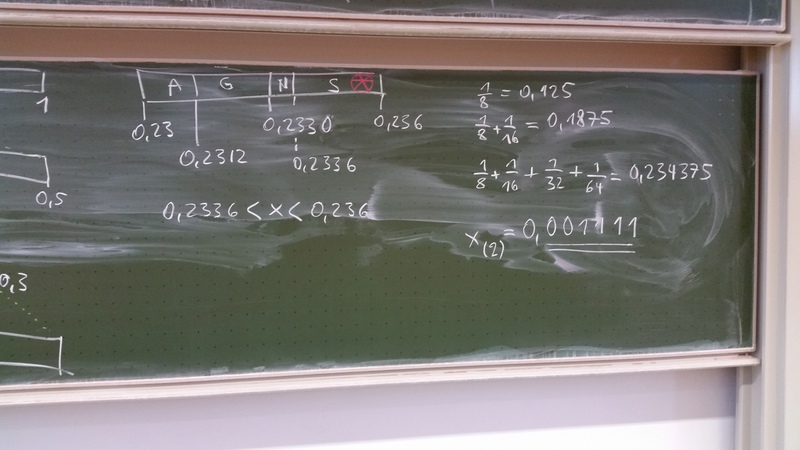 1
0,5
0,3
A G N S
0,23 0,2330 0,236
0,2312 0,2336
0,2336 < x < 0,236
1/8 = 0,125
1/8 + 1/16 = 0,1875
1/8 + 1/16 + 1/32 + 1/64 = 0,234375
x(2) = 0,001111